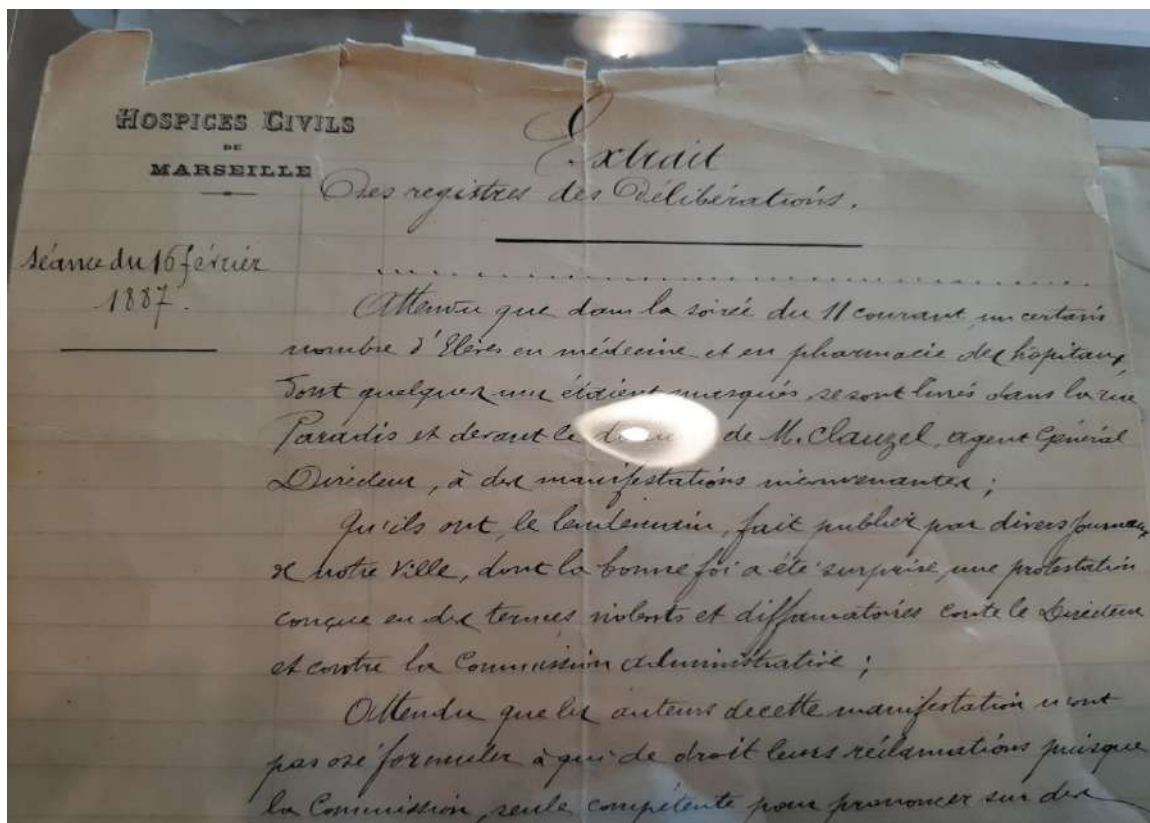 HOSPICES CIVILS
DE
MARSEILLE
Extrait
Des registres des Délibérations.
Séance du 16 février
1887.
Attendu que dans la soirée du 11 courant, un certain
nombre d'Elèves en médecine et en pharmacie des hôpitaux,
dont quelques uns étaient masqués, se sont livrés dans la rue
Paradis et devant le de M. Clauzel, agent Général
Directeur, à des manifestations inconvenantes ;
Qu'ils ont, le lendemain, fait publier par divers journaux
de notre Ville, dont la bonne foi a été surprise, une protestation
conçue en des termes violents et diffamatoires contre le Directeur
et contre la Commission administrative ;
Attendu que les auteurs de cette manifestation n'ont
pas osé formuler à qui de droit leurs réclamations puisque
la Commission, seule compétente pour prononcer sur des